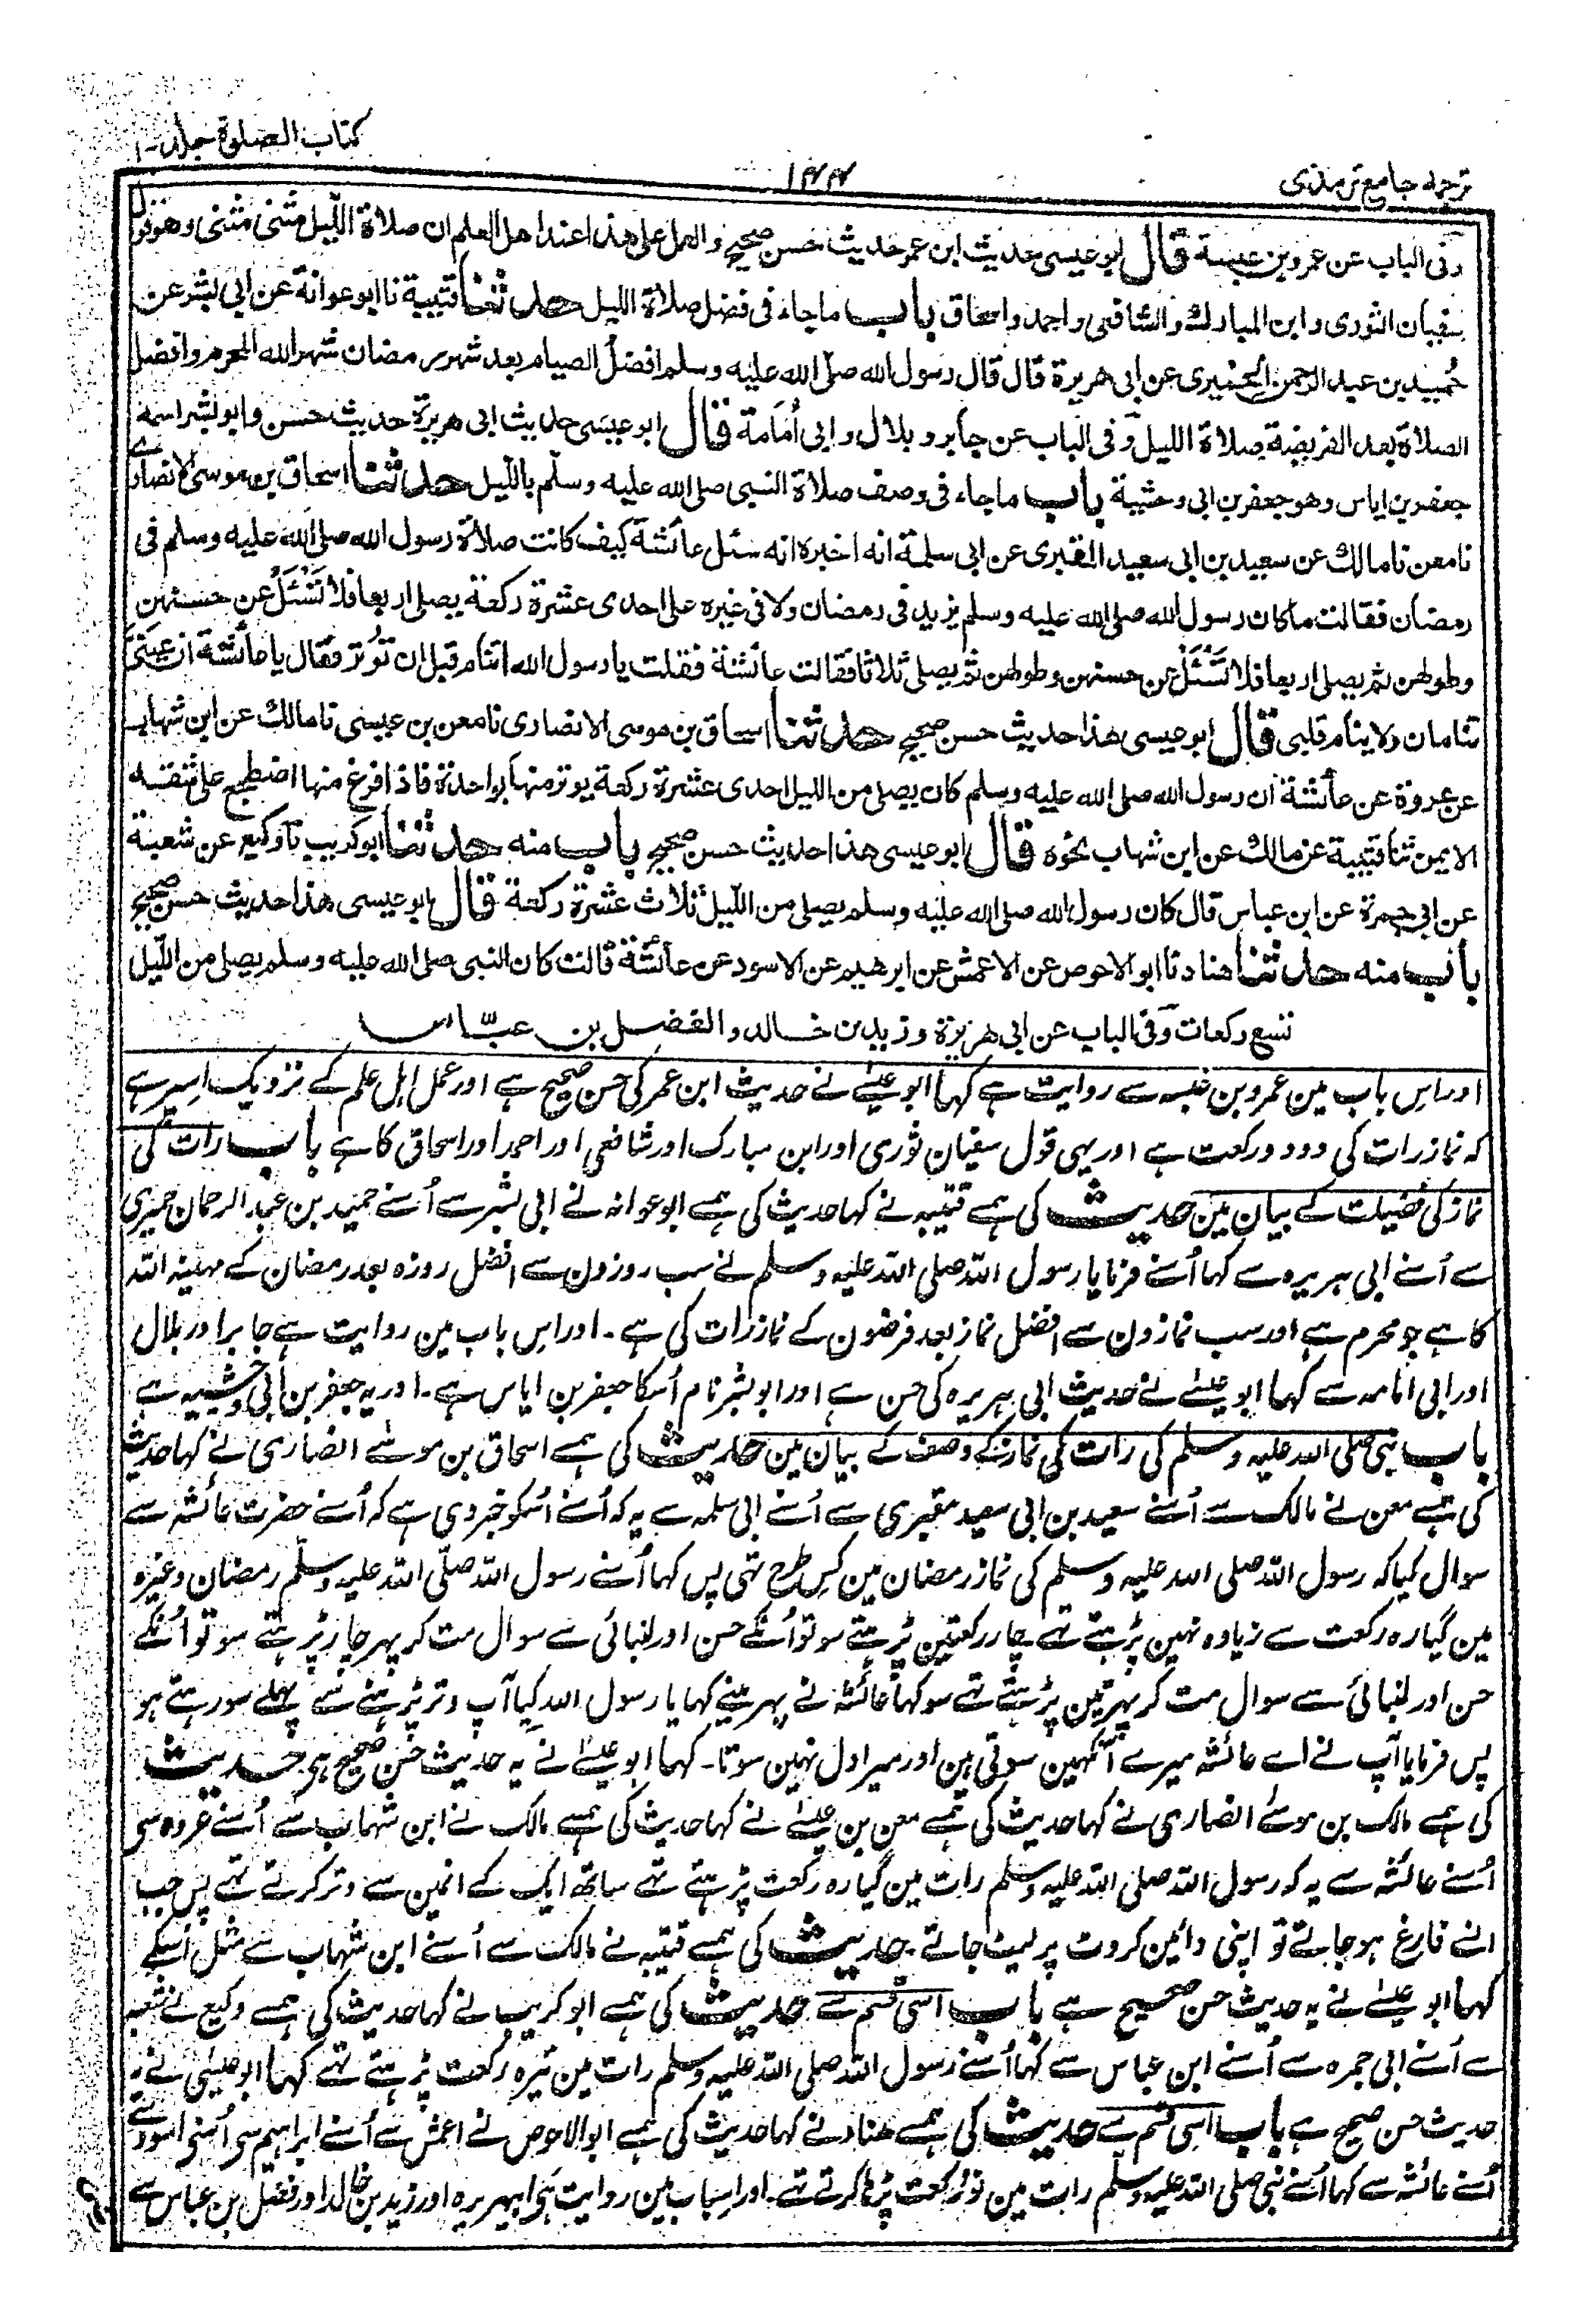 کتاب الصلوۃ جلد-۱
۱۴۴
ترجمہ جامع ترمذی
وفی الباب عن عمرو بن عبسة قال ابو عیسی حدیث ابن عمر حدیث حسن صحیح والعمل علی هذا عند اهل العلم ان صلاة اللیل مثنی مثنی وهو قول
سفیان الثوری وابن المبارك والشافعی واحمد واسحاق باب ماجاء فی فضل صلاة اللیل حدثنا قتیبة نا ابوعوانة عن ابی بشر عن
حُمید بن عبد الرحمن الحمیری عن ابی هریرة قال قال رسول الله صلی الله علیه وسلم افضل الصیام بعد شهر رمضان شهر الله المحرم وافضل
الصلاة بعد الفریضة صلاة اللیل وفی الباب عن جابر وبلال وابی اُمَامة قال ابو عیسی حدیث ابی هریرة حدیث حسن وابو بشر اسمه
جعفر بن ایاس وهو جعفر بن ابی وحشیة باب ماجاء فی وصف صلاة النبی صلی الله علیه وسلم باللیل حدثنا اسحاق بن موسی الانصاری
نا معن نا مالك عن سعید بن ابی سعید المقبری عن ابی سلمة انه اخبره انه سئل عائشة کیف کانت صلاة رسول الله صلی الله علیه وسلم فی
رمضان فقالت ما کان رسول الله صلی الله علیه وسلم یزید فی رمضان ولا فی غیره علی احدی عشرة رکعة یصلی اربعا فلا تَسْئَلْ عن حسنهن
وطولهن ثم یصلی اربعا فلا تَسْئَلْ عن حسنهن وطولهن ثم یصلی ثلاثا فقالت عائشة فقلت یا رسول الله اتنام قبل ان تُوتر فقال یا عائشة ان عینَیَّ
تنامان ولا ینام قلبی قال ابو عیسی هذا حدیث حسن صحیح حدثنا اسحاق بن موسی الانصاری نا معن بن عیسی نا مالك عن ابن شهاب
عن عروة عن عائشة ان رسول الله صلی الله علیه وسلم کان یصلی من اللیل احدی عشرة رکعة یوتر منها بواحدة فاذا فرغ منها اضطجع علی شقه
الایمن ثنا قتیبة عن مالك عن ابن شهاب نحوه قال ابو عیسی هذا حدیث حسن صحیح باب منه حدثنا ابو کریب نا وکیع عن شعبة
عن ابی جمرة عن ابن عباس قال کان رسول الله صلی الله علیه وسلم یصلی من اللیل ثلاث عشرة رکعة قال ابو عیسی هذا حدیث حسن صحیح
باب منه حدثنا هناد نا ابو الاحوص عن الاعمش عن ابرهیم عن الاسود عن عائشة قالت کان النبی صلی الله علیه وسلم یصلی من اللیل
تسع رکعات وفی الباب عن ابی هریرة وزید بن خالد والفضل بن عبّاس
اور اس باب مین عمرو بن عبسہ سے روایت ہے کہا ابو عیسٰے نے حدیث ابن عمر کی حسن صحیح ہے اور عمل اہل علم کے نزدیک اسپر ہے
کہ نماز رات کی دو دو رکعت ہے اور یہی قول سفیان ثوری اور ابن مبارک اور شافعی اور احمد اور اسحاق کا ہے باب رات کی
نماز کی فضیلت کے بیان مین حدیث کی ہمسے قتیبہ نے کہا حدیث کی ہمسے ابوعوانہ نے ابی بشر سے اُسنے حمید بن عبد الرحمان حمیری
سے اُسنے ابی ہریرہ سے کہا اُسنے فرمایا رسول اللہ صلی اللہ علیہ وسلم نے سب روزون سے افضل روزہ بعد رمضان کے مہینہ اللہ
کا ہے جو محرم ہے اور سب نمازون سے افضل نماز بعد فرضون کے نماز رات کی ہے۔ اور اس باب مین روایت ہے جابر اور بلال
اور ابی امامہ سے کہا ابو عیسٰے نے حدیث ابی ہریرہ کی حسن ہے اور ابو بشر نام اُسکا جعفر بن ایاس ہے۔ اور یہ جعفر بن ابی وحشیہ ہے
باب نبی صلی اللہ علیہ وسلم کی رات کی نماز کے وصف کے بیان مین حدیث کی ہمسے اسحاق بن موسٰے انصاری نے کہا حدیث
کی ہمسے معن نے مالک سے اُسنے سعید بن ابی سعید مقبری سے اُسنے ابی سلمہ سے یہ کہ اُسنے اُسکو خبر دی ہے کہ اُسنے حضرت عائشہ سے
سوال کیا کہ رسول اللہ صلی اللہ علیہ وسلم کی نماز رمضان مین کس طرح تہی پس کہا اُسنے رسول اللہ صلّی اللہ علیہ وسلّم رمضان وغیرہ
مین گیارہ رکعت سے زیادہ نہین پڑہتے تہے چار رکعتین پڑہتے سو تو اُنکے حسن اور لنبائی سے سوال مت کر پہر چار پڑہتے سو تو اُنکے
حسن اور لنبائی سے سوال مت کر پہر تین پڑہتے تہے سو کہا عائشہ نے پہر مینے کہا یا رسول اللہ کیا آپ وتر پڑہنے سے پہلے سو رہتے ہو
پس فرمایا آپ نے اے عائشہ میرے آنکہین سوتی ہین اور میرا دل نہین سوتا۔ کہا ابو عیسٰے نے یہ حدیث حسن صحیح ہی حدیث
کی ہمسے مالک بن موسٰے انصاری نے کہا حدیث کی ہمسے معن بن عیسٰے نے کہا حدیث کی ہمسے مالک نے ابن شہاب سے اُسنے عروہ سی
اُسنے عائشہ سے یہ کہ رسول اللہ صلی اللہ علیہ وسلم رات مین گیارہ رکعت پڑہتے تہے ساتھ ایک کے انمین سے وتر کرتے تہے پس جب
انسے فارغ ہو جاتے تو اپنی دائین کروٹ پر لیٹ جاتے۔ حدیث کی ہمسے قتیبہ نے مالک سے اُسنے ابن شہاب سے مثل اُسکے
کہا ابو عیسٰے نے یہ حدیث حسن صحیح ہے باب اسی قسم سے حدیث کی ہمسے ابو کریب نے کہا حدیث کی ہمسے وکیع نے شعبہ
سے اُسنے ابی جمرہ سے اُسنے ابن عباس سے کہا اُسنے رسول اللہ صلی اللہ علیہ وسلم رات مین تیرہ رکعت پڑہتے تہے کہا ابو عیسٰی نے یہ
حدیث حسن صحیح ہے باب اسی قسم سے حدیث کی ہمسے ھناد نے کہا حدیث کی ہمسے ابو الاحوص نے اعمش سے اُسنے ابراہیم سی اُسنی اسود سے
اُسنے عائشہ سے کہا اُسنے نبی صلی اللہ علیہ وسلّم رات مین نو رکعت پڑہا کرتے تہے۔ اور اسباب مین روایت ہی ابیہریرہ اور زید بن خالد اور فضل بن عباس سے